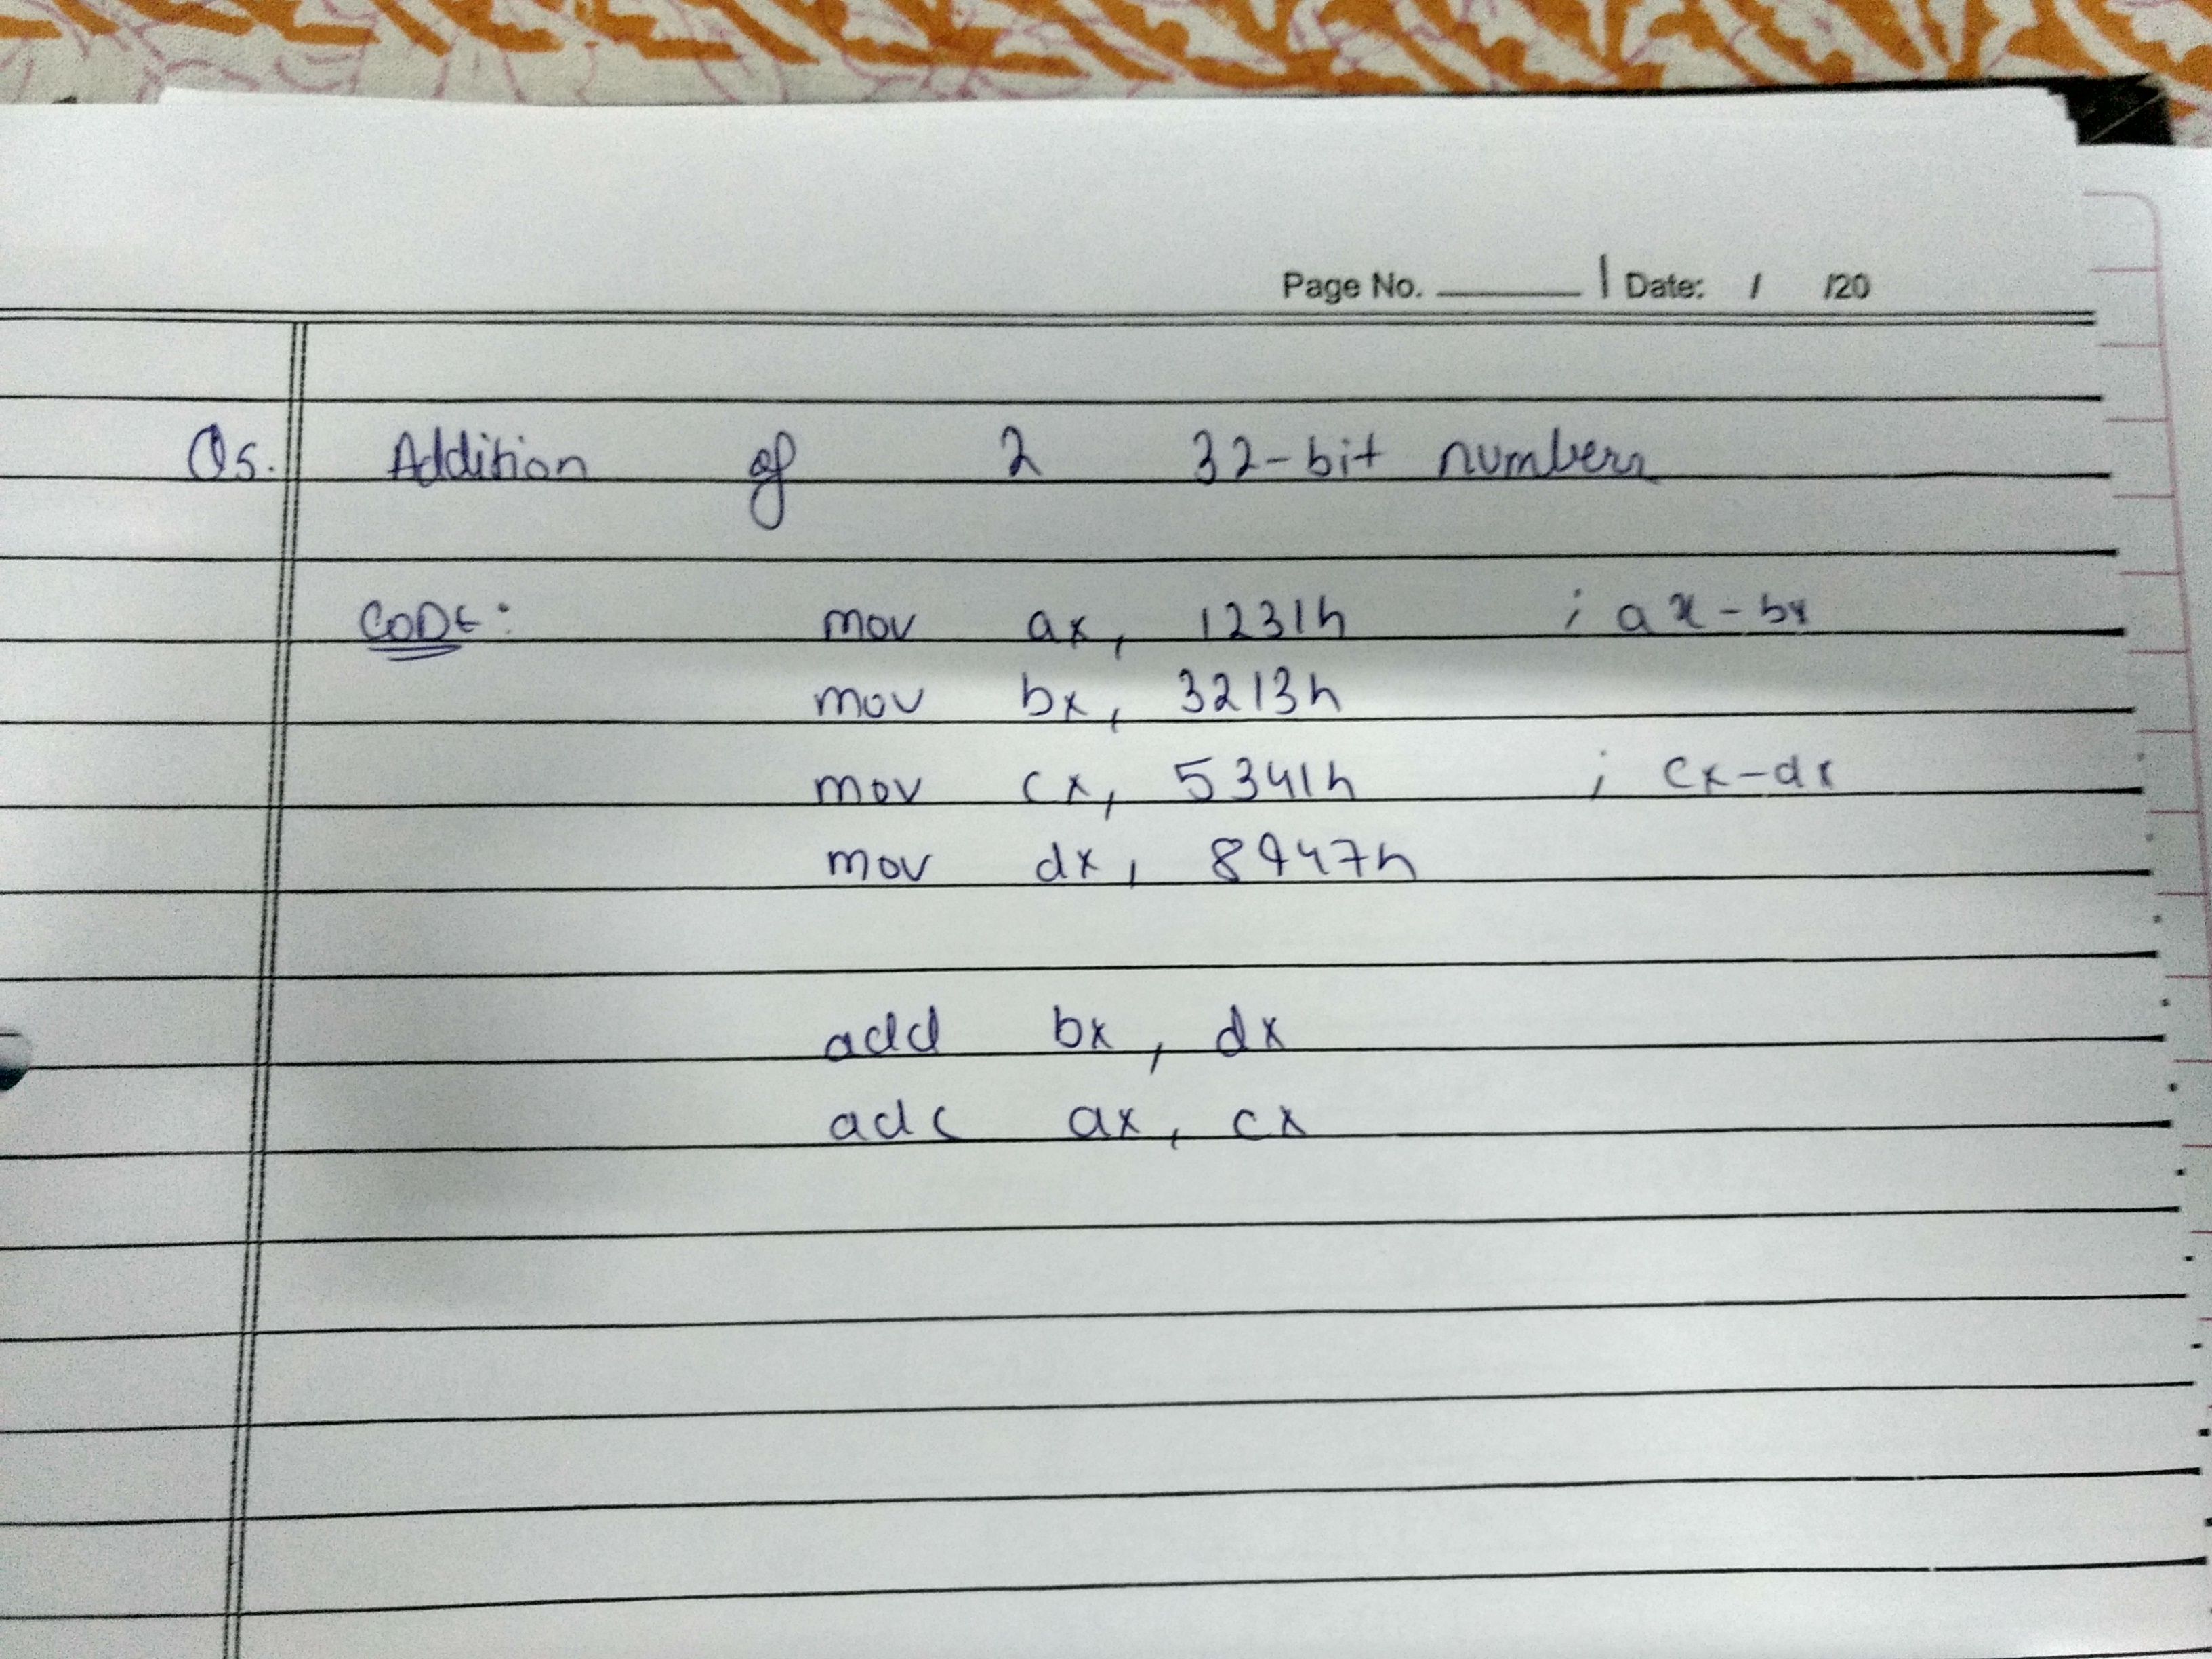 Page No. ______ | Date: / /20
Q5. Addition of 2 32-bit numbers
CODE: mov ax, 1231h ; ax-bx
mov bx, 3213h
mov cx, 5341h ; cx-dx
mov dx, 8947h
add bx, dx
adc ax, cx